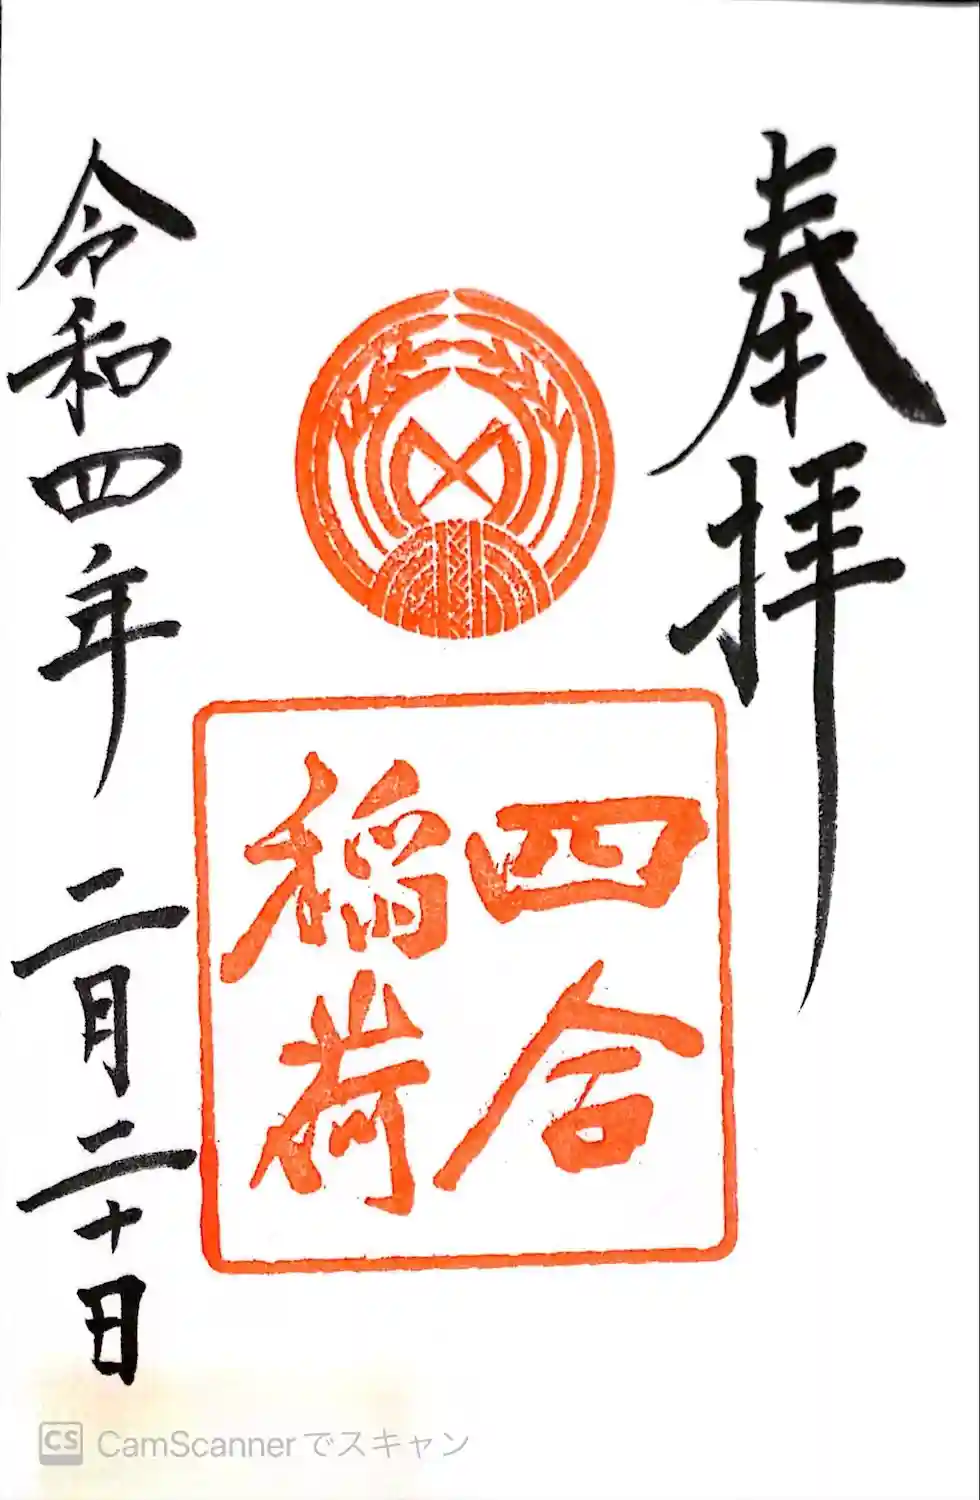 奉拝
四合
稲荷
令和四年 二月二十日
CS CamScannerでスキャン